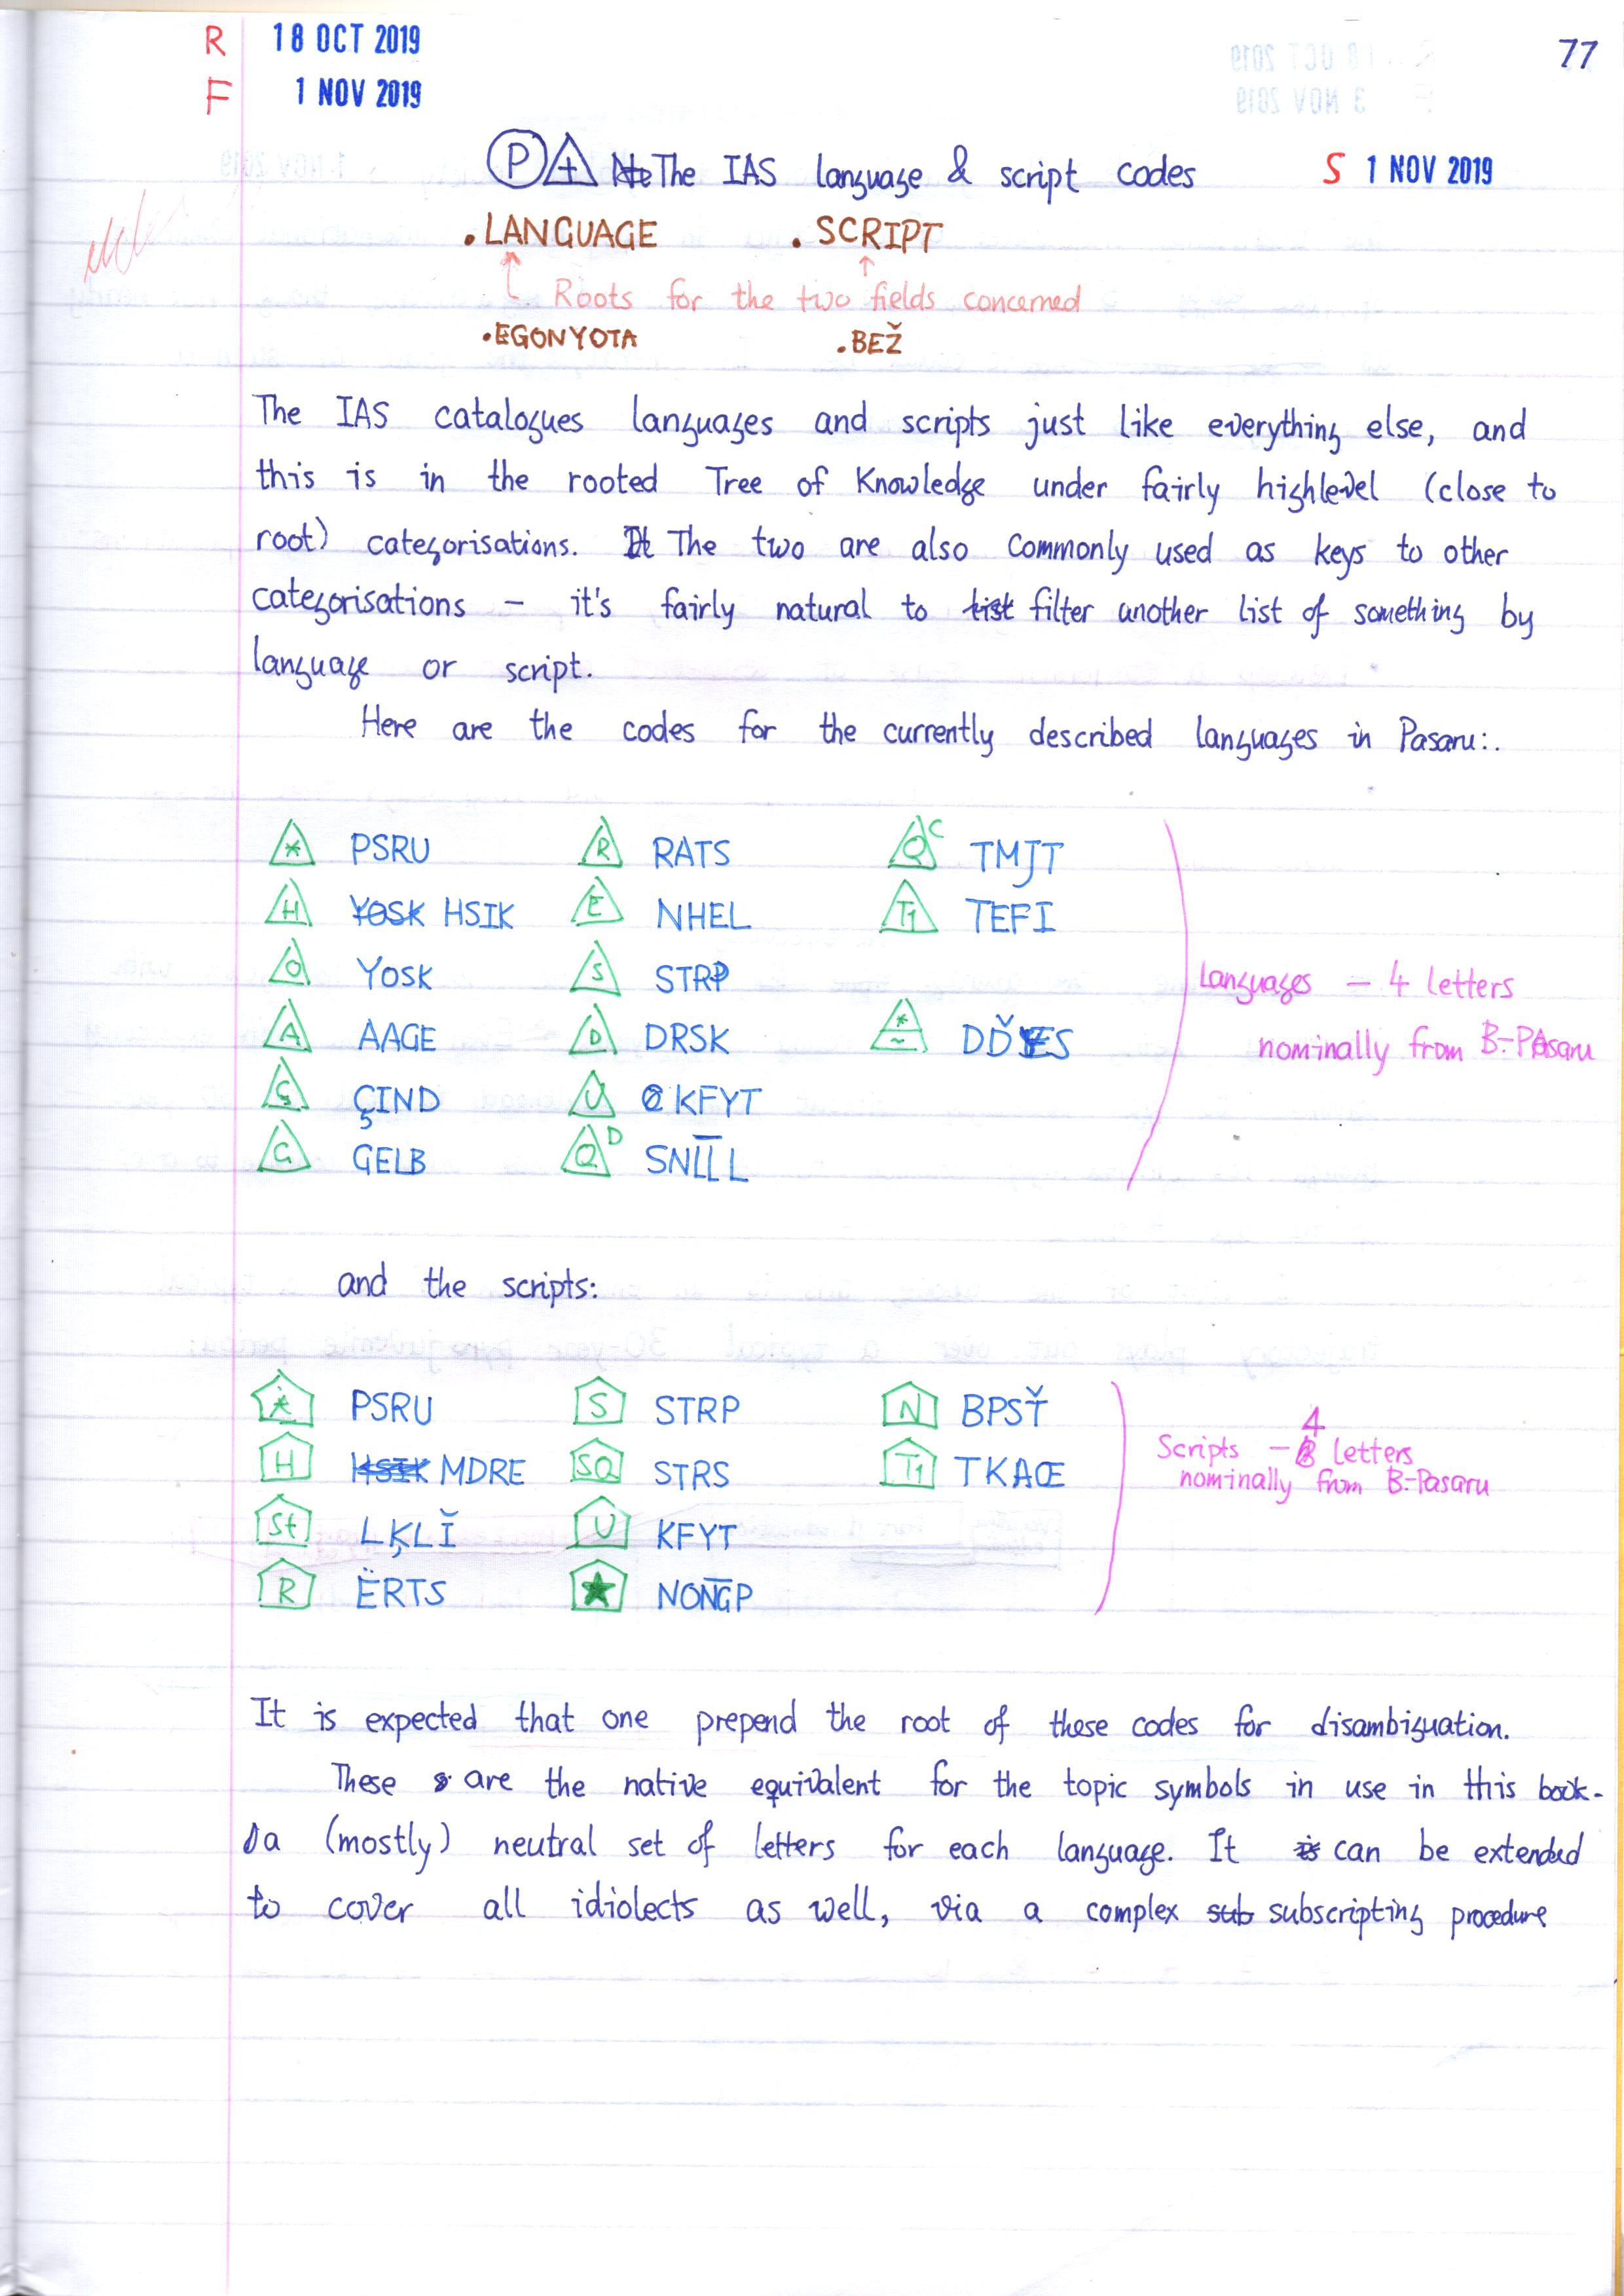 R 18 OCT 2019 77
F 1 NOV 2019
P + The IAS language & script codes S 1 NOV 2019
.LANGUAGE .SCRIPT
Roots for the two fields concerned
.EGONYOTA .BEŽ
The IAS catalogues languages and scripts just like everything else, and
this is in the rooted Tree of Knowledge under fairly highlevel (close to
root) categorisations. The two are also commonly used as keys to other
categorisations – it's fairly natural to filter another list of something by
language or script.
Here are the codes for the currently described languages in Pasaru:.
* PSRU R RATS Q C TMJT
H YOSK HSIK E NHEL T1 TEFI
O YOSK S STRP
A AAGE D DRSK * ~ DĎES
Ç ÇIND U KFYT
G GELB Q D SNĪĪL
Languages – 4 letters
nominally from B-PAsaru
and the scripts:
* PSRU S STRP N BPSŤ
H HSIK MDRE SQ STRS T1 TKAŒ
St LĶLĬ U KFYT
R ËRTS ★ NON̄ḠP
Scripts – 4 letters
nominally from B-Pasaru
It is expected that one prepend the root of these codes for disambiguation.
These are the native equivalent for the topic symbols in use in this book-
a (mostly) neutral set of letters for each language. It can be extended
to cover all idiolects as well, via a complex sub subscripting procedure